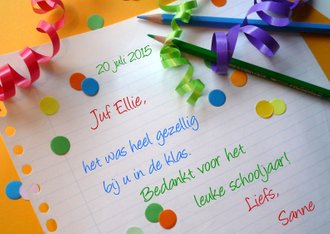 20 juli 2015
Juf Ellie,
het was heel gezellig
bij u in de klas.
Bedankt voor het
leuke schooljaar!
Liefs,
Sanne